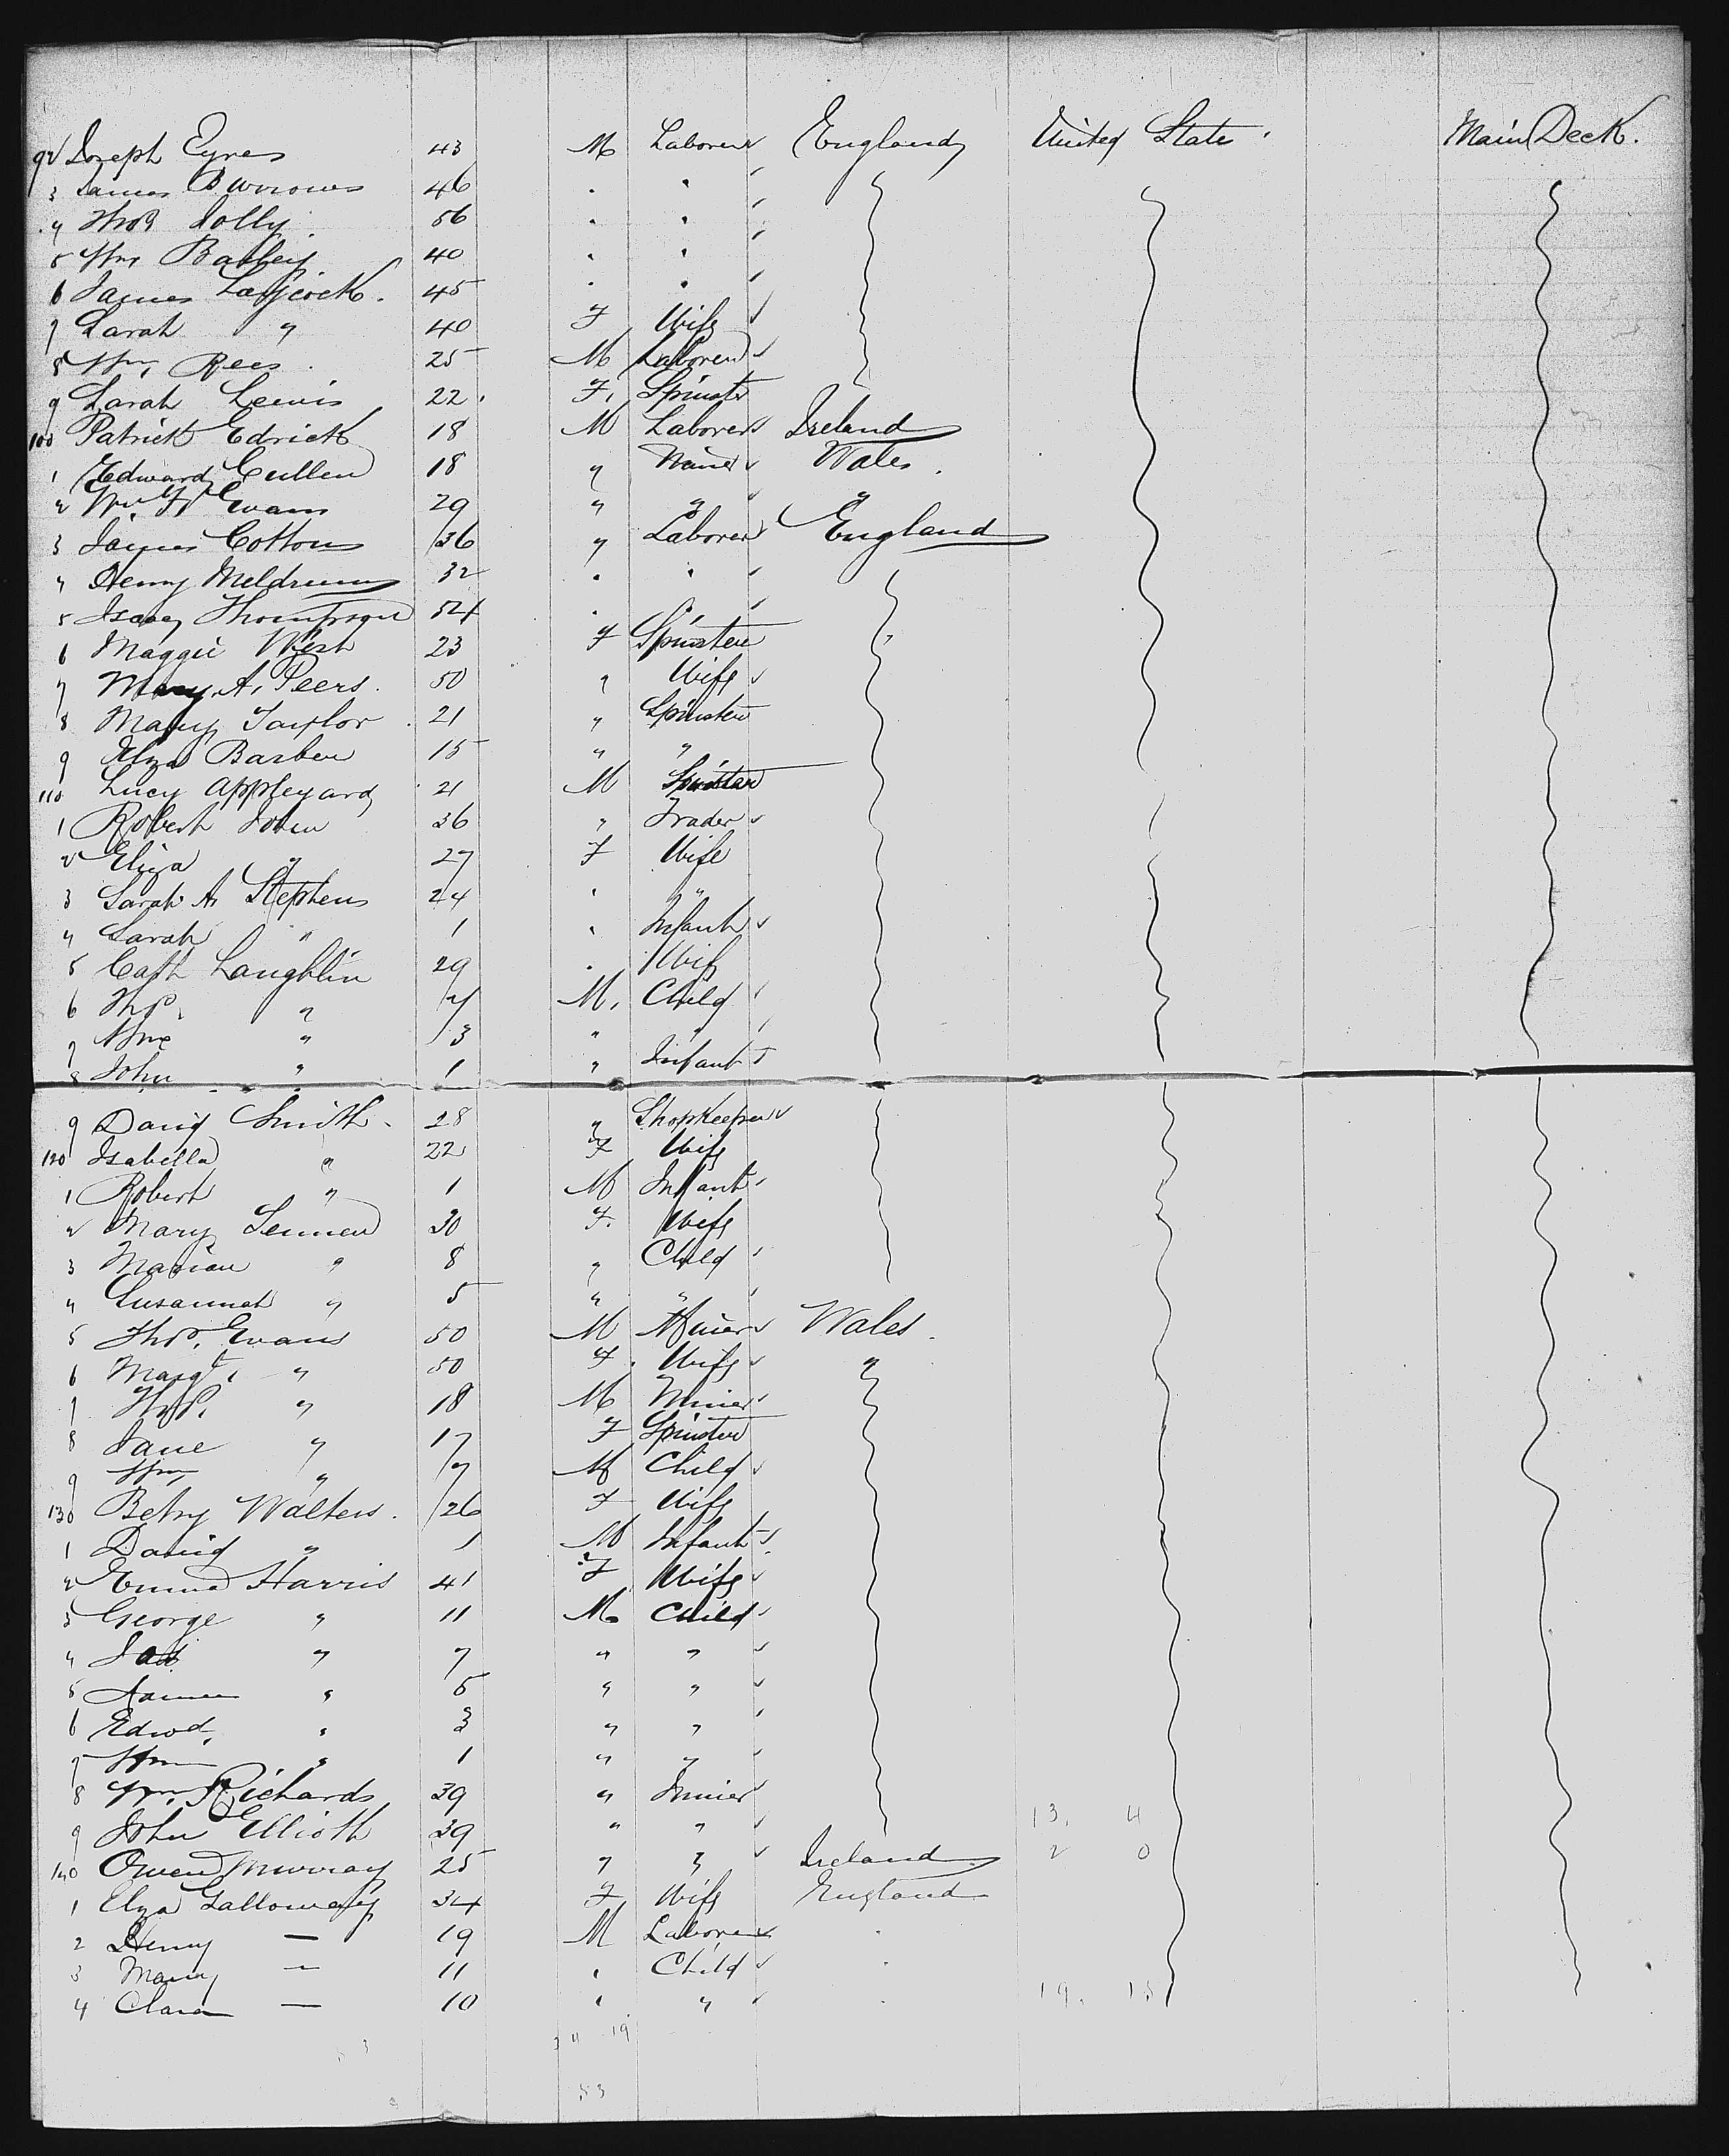 92 Joseph Eyres 43 M Laborer England United States Main Deck.
3 James Burrows 46 . "
4 Thos Jolly 56 . "
5 Wm Batley 40 . "
6 James Laycock. 45 . "
7 Sarah " 40 F Wife
8 Wm Rees 25 M Laborer
9 Sarah Lewis 22 F. Spinster
100 Patrick Edrick 18 M Laborer Ireland
1 Edward Cullen 18 " Miner Wales.
2 Wm Evans 29 " " "
3 James Cotton 36 " Laborer England
4 Henry Meldrum 32 . "
5 Isaac Thompson 54 . "
6 Maggie West 23 F Spinster
7 Mary A. Peers. 50 " Wife
8 Mary Taylor 21 " Spinster
9 Eliza Barber 15 " "
110 Lucy Appleyard 21 M Spinster
1 Robert John 36 " Trader
2 Eliza " 27 F Wife
3 Sarah A. Stephens 24 . "
4 Sarah " 1 . Infant
5 Cath Laughlin 29 . Wife
6 Thos. " 4 M. Child
7 Wm " 3 " "
8 John " 1 " Infant
9 David Smith. 28 " Shopkeeper
120 Isabella " 22 F Wife
1 Robert " 1 M Infant
2 Mary 30 F. Wife
3 Marian " 8 " Child
4 Susannah " 5 " "
5 Thos. Evans 50 M Miner Wales.
6 Margt. " 50 F. Wife "
7 Thos. " 18 M Miner
8 Jane " 17 F Spinster
9 Wm " 7 M Child
130 Betsy Walters. 26 F Wife
1 David " 1 M Infant
2 Emma Harris 41 F Wife
3 George " 11 M Child
4 " 7 " "
5 " 5 " "
6 Edwd. " 3 " "
7 Wm " 1 " "
8 Wm. Richards 39 " Miner
9 John Elliott 39 " " 13. 4
140 Owen Murray 25 " " Ireland 2 0
1 Eliza Galloway 34 F Wife England
2 Henry — 19 M Laborer .
3 Mary — 11 . Child .
4 Clara — 10 . " . 19. 15
34 19
53